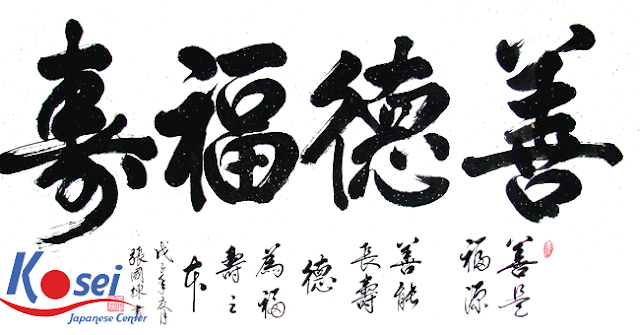 善德福寿
善是
福源
善能
長壽
德
為福
壽之
本
戊子年
張國棟書
Kosei
Japanese Center